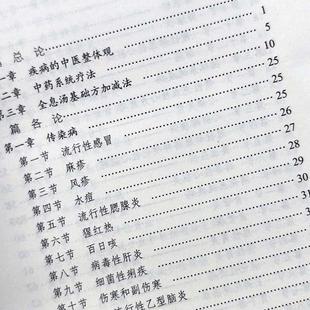 总 论 1
一章 疾病的中医整体观 5
二章 中药系统疗法 10
第三章 全息汤基础方加减法 25
篇 各论 25
第一章 传染病 26
第一节 流行性感冒 27
第二节 麻疹 28
第三节 风疹
第四节 水痘 29
第五节 流行性腮腺炎 30
第六节 猩红热 30
第七节 百日咳 31
第八节 病毒性肝炎
第九节 细菌性痢疾
第十节 伤寒和副伤寒
流行性乙型脑炎